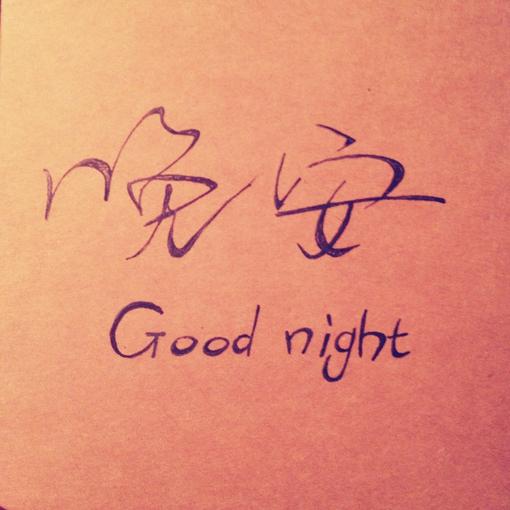 晚安
Good night